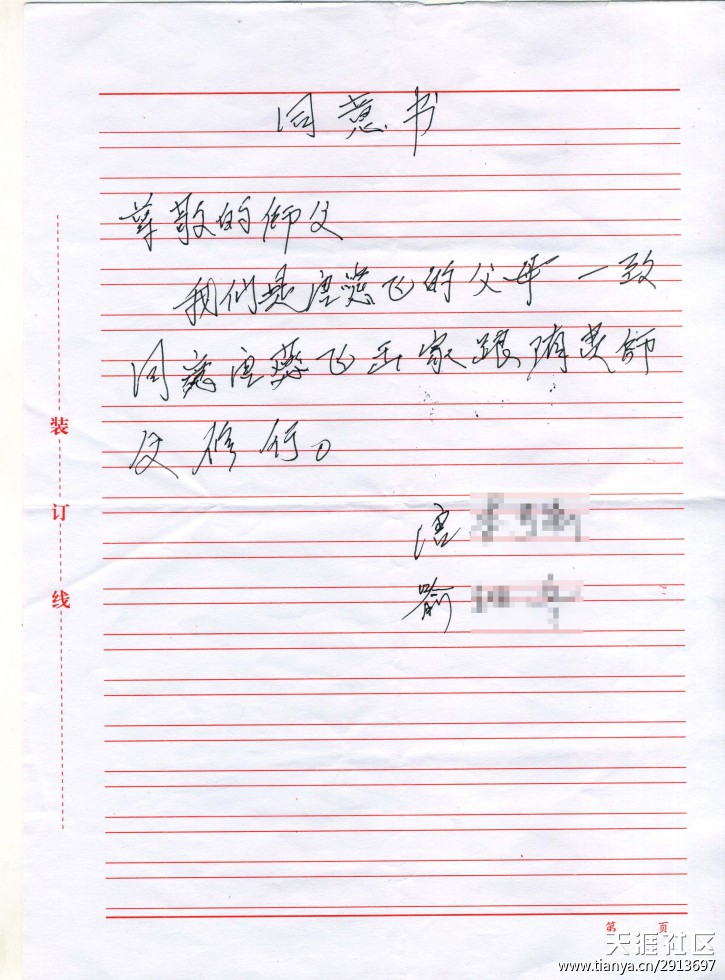 同意书
尊敬的师父
我们是唐慧飞的父母 一致
同意唐慧飞出家跟随贵师
父修行。
唐
喻
装
订
线
第 页
天涯社区
www.tianya.cn/2913697